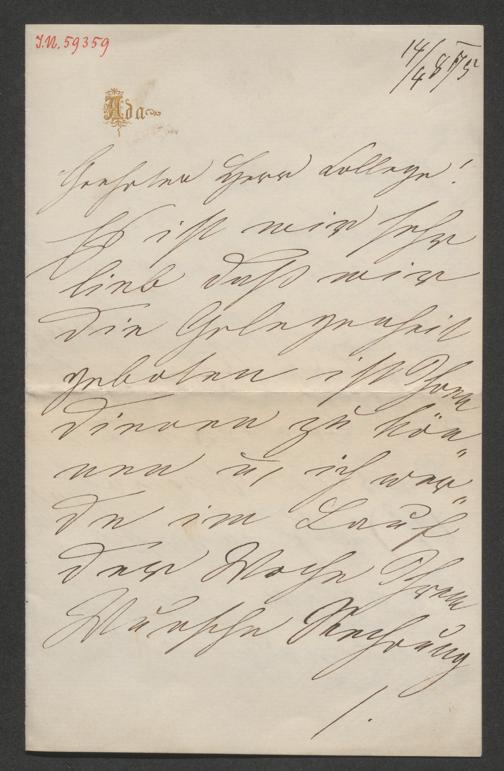 J.N. 59359
14/4 875
Ada
Geehrter Herr College!
Es ist mir sehr
lieb daß mir
die Gelegenheit
geboten ist Ihnen
dienen zu kön„
nen u, ich wer„
de im Lauf
der Woche Ihrem
Wunsche Rechnung
/.